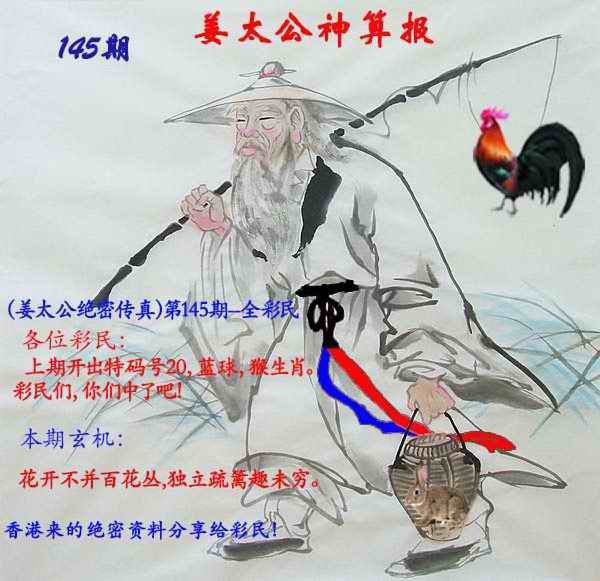 姜太公神算报
145期
(姜太公绝密传真)第145期--全彩民
各位彩民:
上期开出特码号20,蓝球,猴生肖。
彩民们,你们中了吧!
本期玄机:
花开不并百花丛,独立疏篱趣未穷。
香港来的绝密资料分享给彩民!